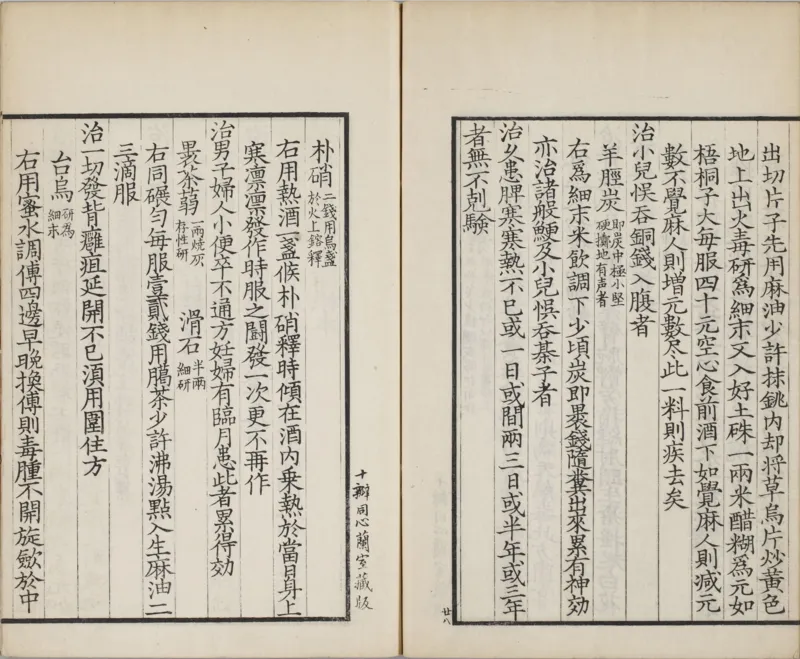 出切片子先用麻油少許抹銚内却将草烏片炒黄色
地上出火毒研為細末又入好土硃一兩米醋糊為元如
梧桐子大每服四十元空心食前酒下如覺麻人則减元
數不覺麻人則增元數尽此一料則疾去矣
治小兒悮吞銅錢入腹者
羊脛炭即炭中極小堅硬擲地有声者
右為細末米飲調下少頃炭即褁錢隨糞出來累有神効
亦治諸般鯁及小兒悮吞棊子者
治久患脾寒寒熱不已或一日或間兩三日或半年或三年
者無不剋驗
廿八
朴硝二錢用烏盞於火上鎔釋
右用熱酒一盞候朴硝釋時傾在酒内乗熱於當日身上
寒凛凛發作時服之闘發一次更不再作
治男子婦人小便卒不通方妊婦有臨月患此者累得効
褁茶蒻一兩燒灰存性研 滑石半兩細研
右同碾匀每服壹貳錢用臈茶少許沸湯點入生麻油二
三滴服
治一切發背癰疽延開不已湏用圍住方
台烏研為細末
右用蜜水調傅四邊早晚換傅則毒腫不開旋歛於中
十瓣同心蘭室藏版